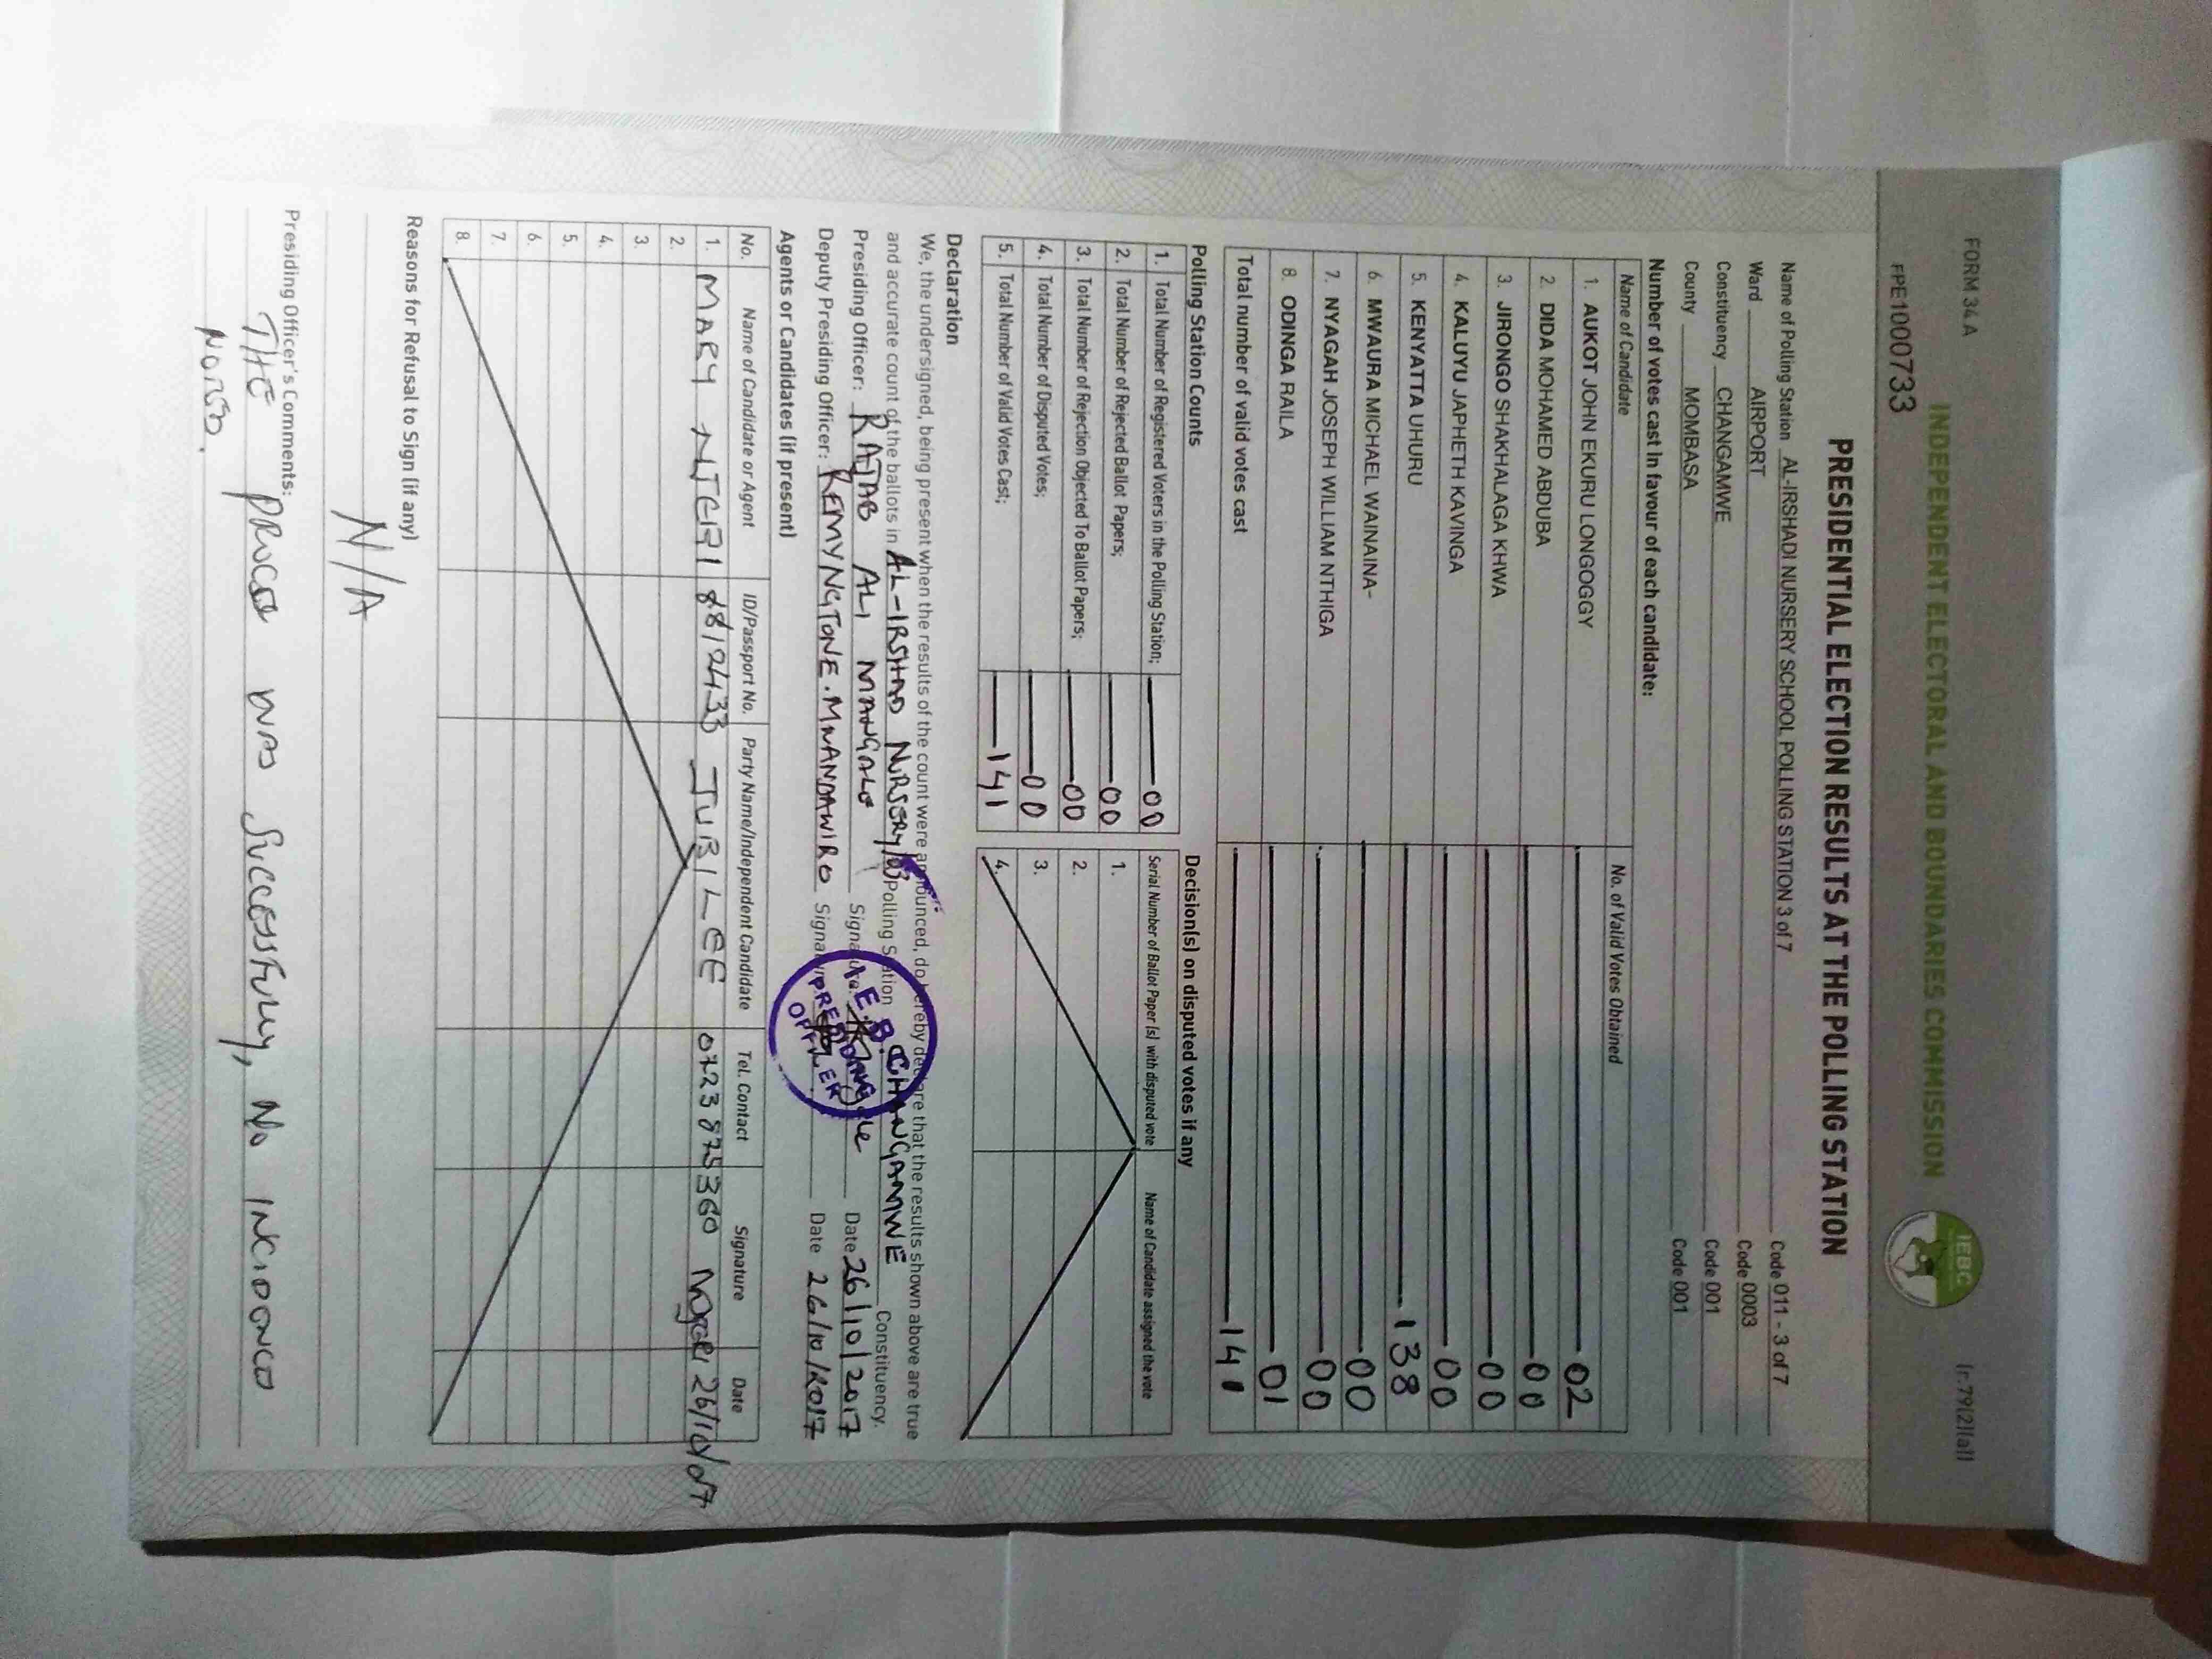 FORM 34A
(r.79(2)(a))
INDEPENDENT ELECTORAL AND BOUNDARIES COMMISSION
IEBC
FPE1000733
PRESIDENTIAL ELECTION RESULTS AT THE POLLING STATION
Name of Polling Station AL-IRSHADI NURSERY SCHOOL POLLING STATION 3 of 7 Code 011 - 3 of 7
Ward AIRPORT Code 0003
Constituency CHANGAMWE Code 001
County MOMBASA Code 001
Number of votes cast in favour of each candidate:
Name of Candidate No. of Valid Votes Obtained
1. AUKOT JOHN EKURU LONGOGGY 02
2. DIDA MOHAMED ABDUBA 00
3. JIRONGO SHAKHALAGA KHWA 00
4. KALUYU JAPHETH KAVINGA 00
5. KENYATTA UHURU 138
6. MWAURA MICHAEL WAINAINA- 00
7. NYAGAH JOSEPH WILLIAM NTHIGA 00
8. ODINGA RAILA 01
Total number of valid votes cast 141
Polling Station Counts
1. Total Number of Registered Voters in the Polling Station; 00
2. Total Number of Rejected Ballot Papers; 00
3. Total Number of Rejection Objected To Ballot Papers; 00
4. Total Number of Disputed Votes; 00
5. Total Number of Valid Votes Cast; 141
Decision(s) on disputed votes if any
Serial Number of Ballot Paper (s) with disputed vote Name of Candidate assigned the vote
1.
2.
3.
4.
Declaration
We, the undersigned, being present when the results of the count were announced, do hereby declare that the results shown above are true
and accurate count of the ballots in AL-IRSHAD NURSERY/03 Polling Station CHANGAMWE Constituency.
Presiding Officer: RAJAB ALI MANGALE Signature: Date 26/10/2017
Deputy Presiding Officer: REMYNGTONE.MWANDAWIRO Signature Date 26/10/2017
I.E.B.C
PRESIDING
OFFICER
Agents or Candidates (if present)
No. Name of Candidate or Agent ID/Passport No. Party Name/Independent Candidate Tel. Contact Signature Date
1. MARY NJERI JUBILEE 0723875360 26/10/017
2.
3.
4.
5.
6.
7.
8.
Reasons for Refusal to Sign (if any)
N/A
Presiding Officer's Comments:
THE PROCESS WAS SUCCESSFULLY, NO
NOTED.